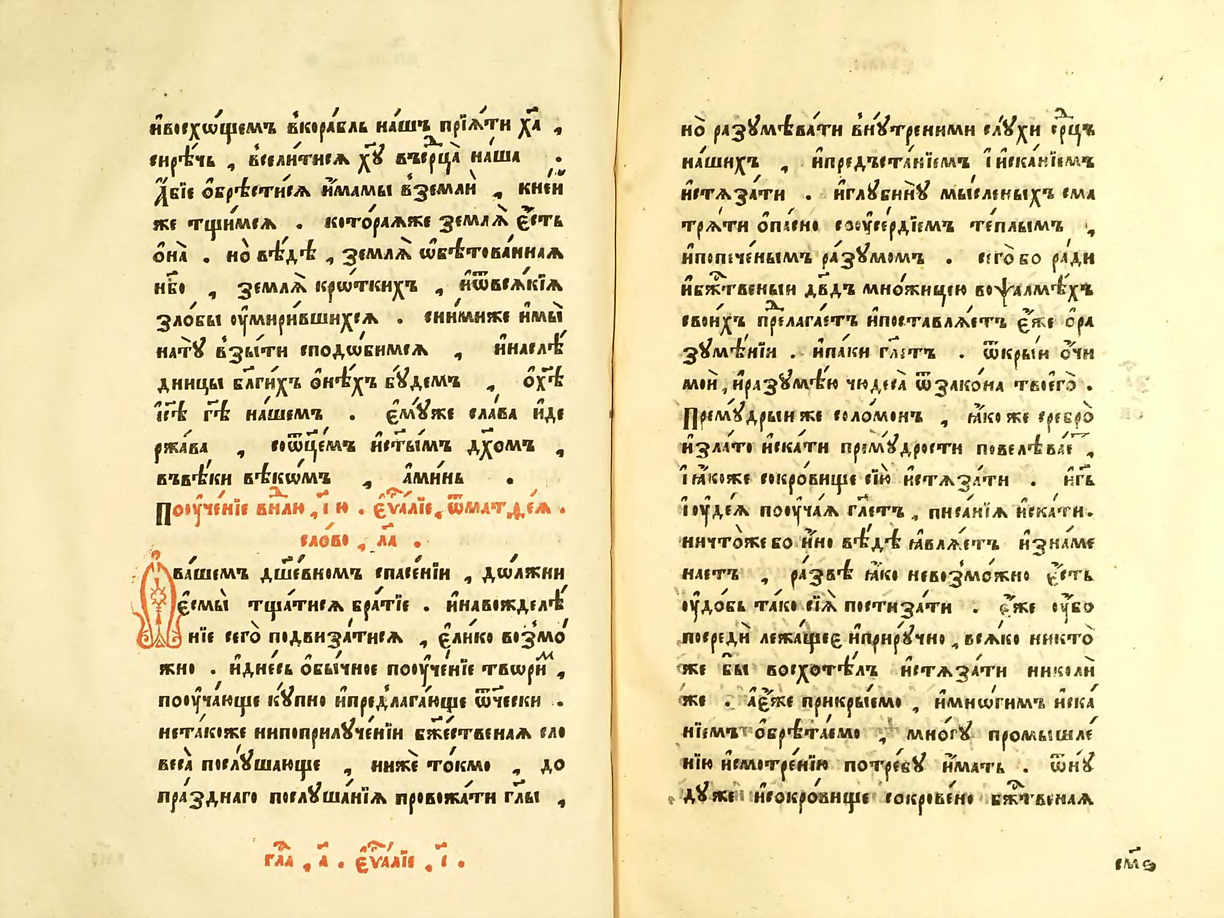 и҆восхѡ́щемъ в̾кора́бль на́шъ прїѧ́ти хⷭ҇а ,
сирѣ́чь , всели́тисѧ хⷭ҇у въсрⷣца̀ на́ша .
А҆́бїе ѡ҆брѣ́стисѧ и҆́мамы в̾землѝ , кне́и
же тщи́мсѧ . кото́раѧже землѧ̀ є҆́сть
ѻ҆на̀ . но̀ вѣ́дѣ , землѧ̀ ѡ҆бѣтова́ннаѧ
нб҃о , землѧ̀ кро́ткихъ , и҆ѿвсѧ́кїѧ
зло́бы ᲂу҆мири́вшихсѧ . сни́миже и҆мы̀
на́тꙋ взы́ти сподо́бимсѧ , и҆наслѣ́
дницы бл҃ги́хъ ѻ҆нѣ́хъ бꙋ́демъ , ѡ҆хⷭ҇ѣ
і҆с҃ѣ гⷭ҇ѣ на́шемъ . є҆мꙋ́же сла́ва и҆де
ржа́ва , соѿце́мъ и҆ст҃ы́мъ дх҃омъ ,
въвѣ́ки вѣкѡ́мъ , а҆ми́нь .
Поᲂуче́нїе внⷣлю , г҃і ю . є҆ѵⷢ҇алїе , ѿматѳе́ѧ .
сло́во , л҃а .
Ѡ҆ва́шемъ дш҃е́вномъ спасе́нїи , дѡ́лжни
є҆смы̀ тща́тисѧ бра́тїе . и҆навожделѣ́
нїе сего̀ подвиза́тисѧ , є҆ли́ко возмо́
жно . и҆дне́сь ѻ҆бы́чное поᲂуче́нїе твори́м ,
поᲂуча́юще кꙋ́пно и҆предлага́юще ѻ҆те́чески .
нета́коже нипоприлꙋче́нїи бж҃е́ственаѧ сло
веса̀ послꙋ́шающе , нижѐ то́кмо , до
пра́зднаго послꙋша́нїѧ провожа́ти гл҃ы ,
гл҃а , а҃ . є҆ѵⷢ҇алїе , г҃і .
но̀ разꙋмѣва́ти внꙋ́треними слꙋ́хи срⷣцъ
на́шихъ , и҆предъста́нїемъ і҆иска́нїемъ
и҆стѧза́ти . и҆глꙋбинꙋ̀ мы́сленыхъ сма
трѧ́ти ѻ҆па́сно соᲂусе́рдїемъ те́плымъ ,
и҆попече́нымъ ра́зꙋмомъ . сего̀ бо ра́ди
и҆бжⷭ҇твеныи дв҃дъ мно́жицею воѱалмѣ́хъ
свои́хъ предлага́етъ и҆поставлѧ́етъ є҆́же ѡ҆ра
зꙋмѣ́нїи . и҆па́ки гл҃етъ . ѿкры́и ѻ҆́чи
моѝ , и҆разꙋмѣ́ю чюдеса̀ ѿзако́на твоего̀ .
Премꙋ́дрыи же соломо́нъ , ꙗ҆́ко же сребро̀
и҆зла́то и҆ска́ти премꙋ́дрости повелѣва́еⷮ ,
і҆ ꙗ҆́коже сокро́вище сїю̀ и҆стѧза́ти . и҆гⷭ҇ь
і҆ꙋде́ѧ поᲂуча́ѧ гл҃етъ , писа́нїѧ и҆ска́ти .
ничто́же бо и҆́но вѣ́дѣ ꙗ҆влѧ́етъ и҆зна́ме
наетъ , ра́звѣ ꙗ҆́ко невозмо́жно є҆́сть
ᲂу҆до́бь та́ко сїѧ̀ пости́зати . є҆́же ᲂу҆́бо
посредѝ лежа́щее и҆прирꙋ́чно , всѧ́ко никто̀
же бы̀ восхотѣ́лъ и҆стѧза́ти николѝ
же . а҆е҆́же прикрые́мо , и҆мнѡ́гимъ и҆ска́
нїемъ ѡ҆брѣта́емо , мно́гꙋ промышле́
нїю и҆смотре́нїю потре́бꙋ и҆́мать . ѿнꙋ́
дꙋже и҆сокро́вище сокрове́но бжⷭ҇твенаѧ
см҃ѕ